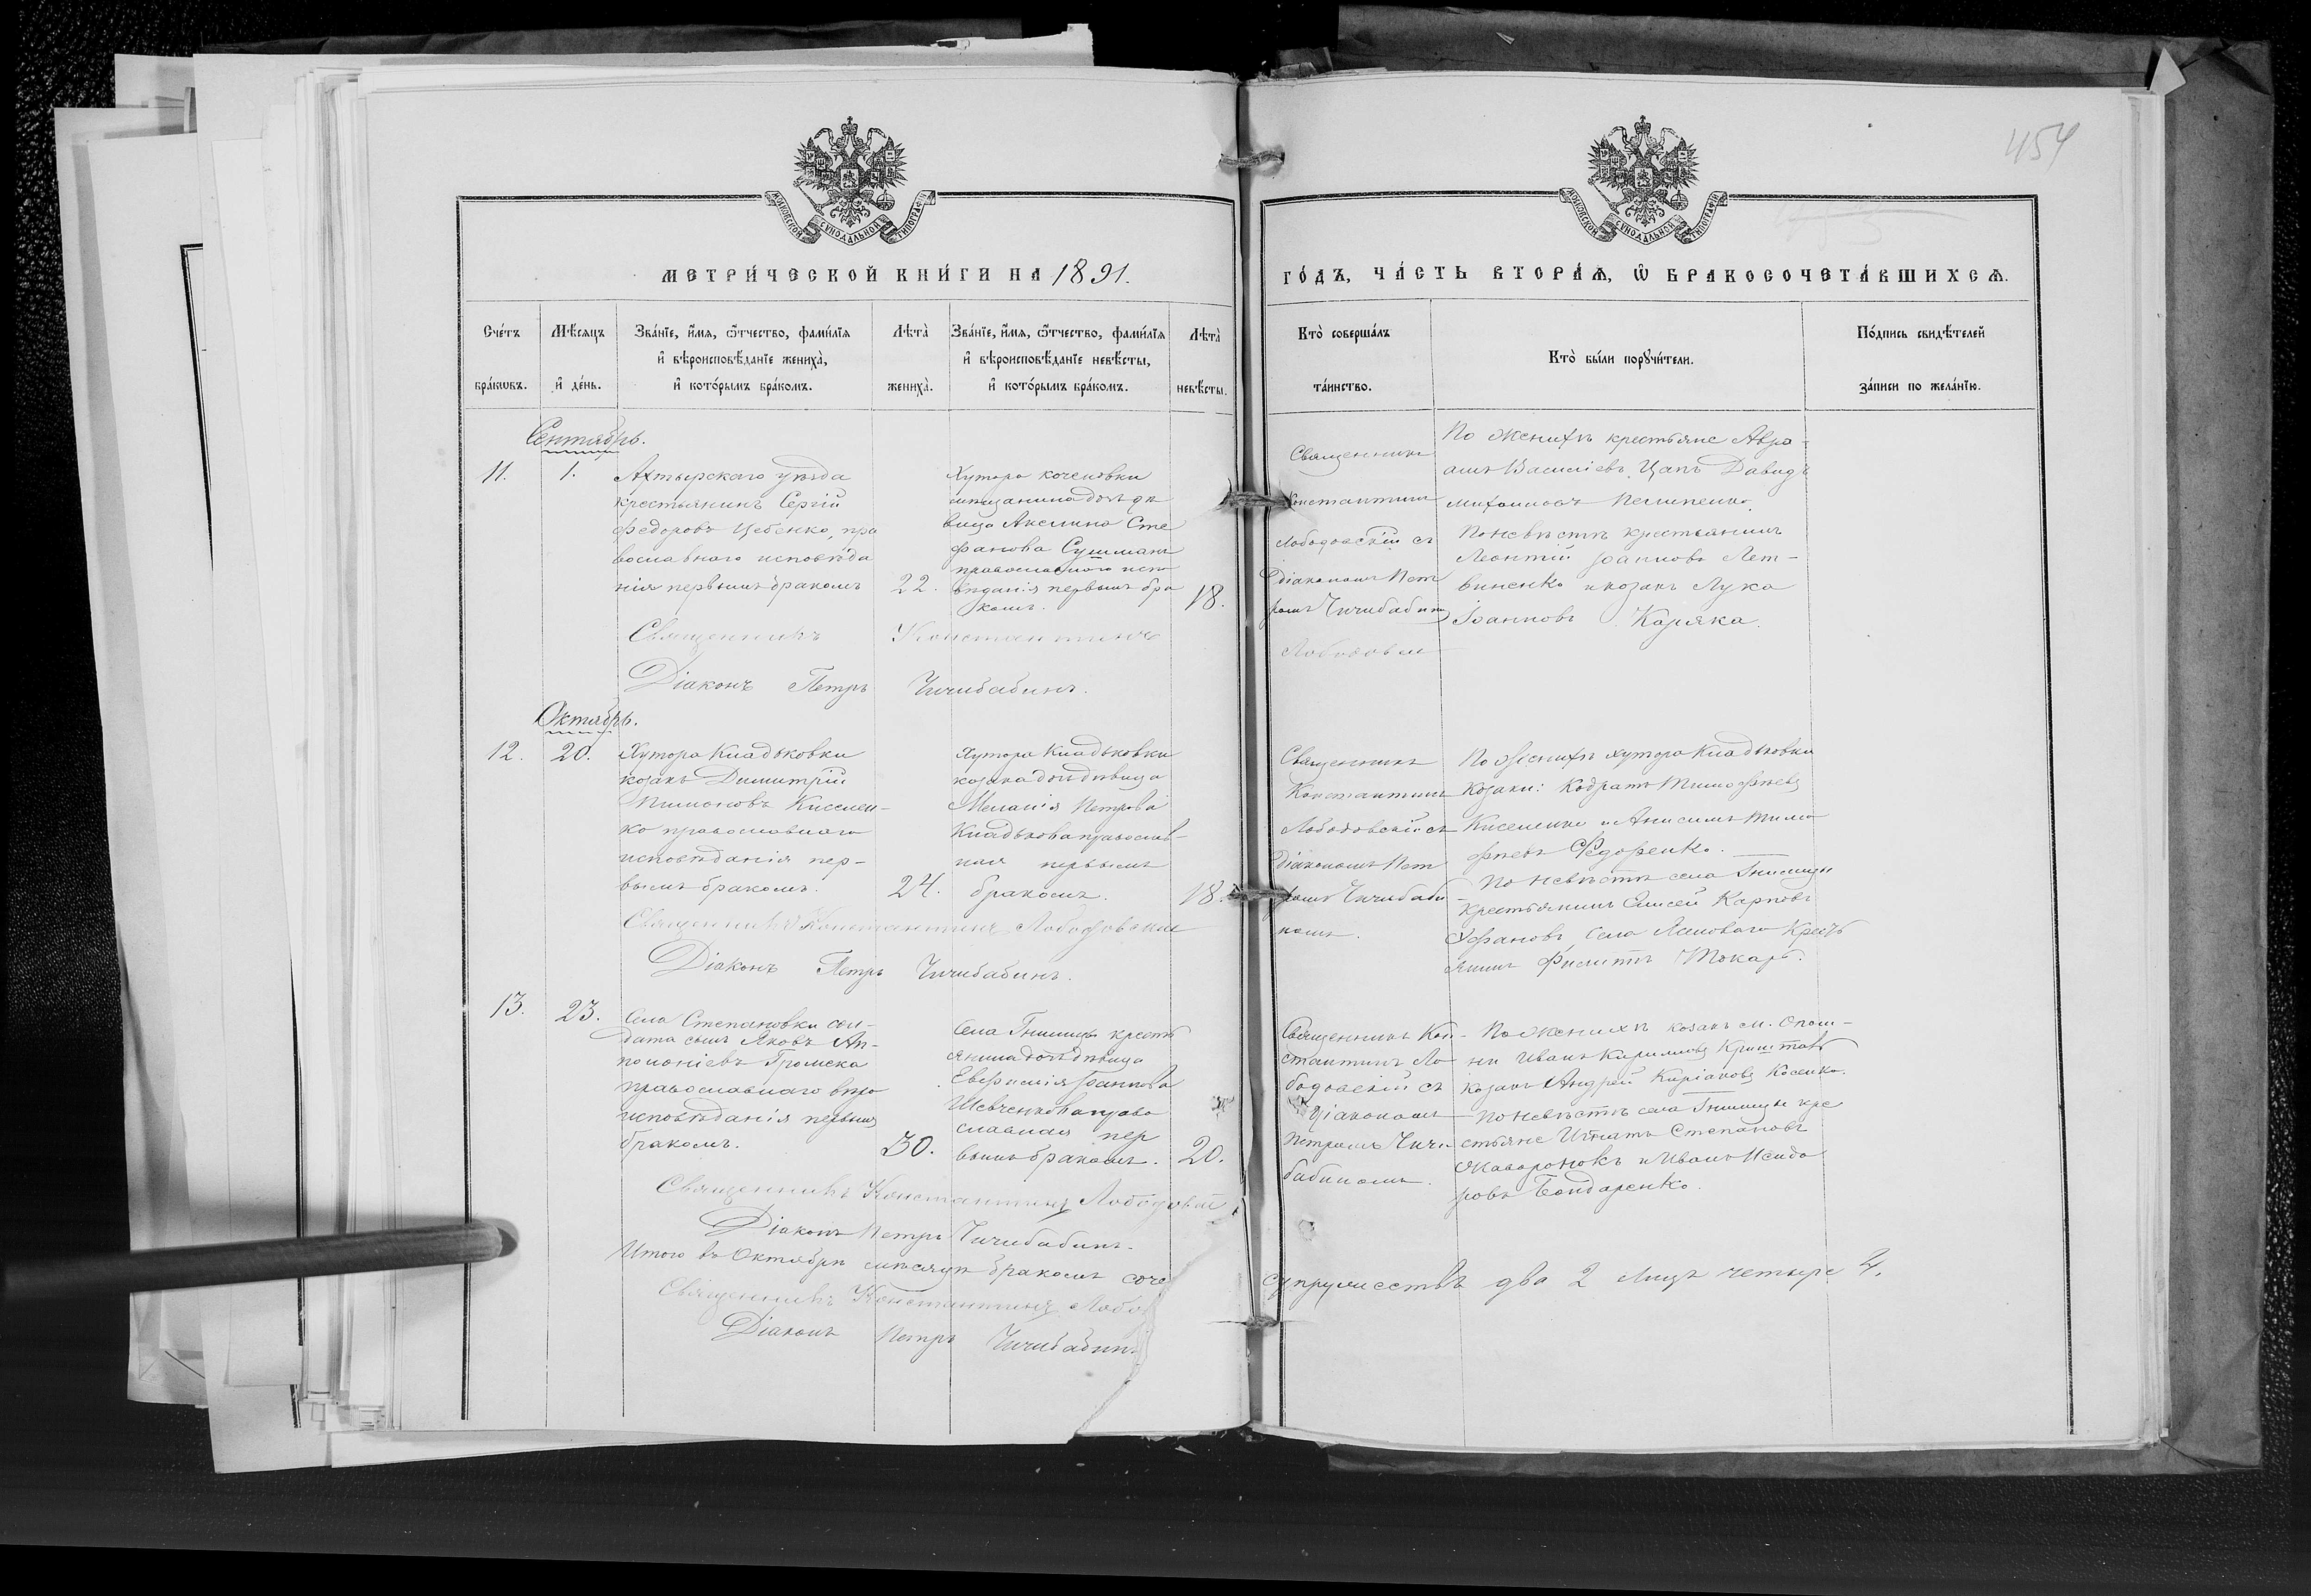 454
МЕТРИ́ЧЕСКОЙ КНИ́ГИ НА 1891.
ГО́ДЪ, ЧА́СТЬ ВТОРА́Ѧ, Ѿ БРАКОСОЧЕТА́ВШИХСѦ.
Сче́тъ бра́кѡвъ.
Мѣ́сѧцъ и҆ де́нь.
Зва́нїе, и҆́мѧ, ѻ҆́тчество, фами́лїѧ и҆ вѣроисповѣ́данїе жениха̀, и҆ кото́рымъ бра́комъ.
Лѣта̀ жениха̀.
Зва́нїе, и҆́мѧ, ѻ҆́тчество, фами́лїѧ и҆ вѣроисповѣ́данїе невѣ́сты, и҆ кото́рымъ бра́комъ.
Лѣта̀ невѣ́сты.
Кто̀ соверша́лъ та́инство.
Кто̀ бы́ли порꙋчи́тели.
По́дпись свидѣ́телей за́писи по жела́нїю.
Сентябрь.
11.
1.
Ахтырскаго уѣзда
крестьянинъ Сергій
Федоровъ Цебенко, пра
вославнаго исповѣда
нія первымъ бракомъ
22.
Хутора
мѣщанина дочь дѣ
вица Акилина Сте
фанова Сушманъ
православного испо
вѣданія первымъ бра
комъ.
18.
Священникъ
Константинъ
Лободовскій съ
Діакономъ Пет
ромъ Чичибабин
По женихѣ крестьяне Авра-
амъ Василіевъ Цапъ Давидъ
Михаиловъ Пилипенко.
По невѣстѣ крестьянинъ
Леонтій Іоанновъ Лет-
виненко и козакъ Лука
Іоанновъ Каряка.
Священникъ Константинъ Лободовск
Діаконъ Петръ Чичибабинъ.
Октябрь.
12.
20.
Хутора Кладьковки
козакъ Димитрій
Киселен-
ко православнаго
исповѣданія пер-
вымъ бракомъ.
24.
Хутора Кладьковки
козака дочь дѣвица
Меланія Петрова
Кладькова православ-
ная первымъ
бракомъ.
18.
Священникъ
Константинъ
Лободовскій съ
Діакономъ Пет
ромъ Чичибаби
номъ.
По женихѣ хутора Кладьковки
козаки: Кодратъ Тимофѣевъ
Киселенко и Анисимъ Тимо
фѣевъ Федоренко.
По невѣстѣ села Гнилицы
крестьянинъ Елисей Карповъ
села Липоваго Крест
янинъ Филиппъ Токарь.
Священникъ Константинъ Лободовскій
Діаконъ Петръ Чичибабинъ.
13.
23.
Села Степановки сол-
дата сынъ Яковъ Ап-
полоніевъ Громека
православнаго вѣро
исповѣданія первым
бракомъ.
30.
Села Гнилицы кресть
янина дочь дѣвица
Евфимія Іоаннова
Шевченкова право
славная пер
вымъ бракомъ.
20.
Священникъ Кон-
стантинъ Ло-
бодовскій съ
Діакономъ
Петромъ Чичи
бабиномъ.
По женихѣ козакъ м. Опош-
ни Иванъ Кириловъ Криштовъ
козакъ Андрей Киріаковъ Косенко.
По невѣстѣ села Гнилицы кре
стьяне Игнатъ Степановъ
Жаворонокъ и Иванъ Исидо
ровъ Бондаренко.
Священникъ Константинъ Лободовскій
Діаконъ Петръ Чичибабинъ.
Итого въ Октябрѣ мѣсяцѣ бракомъ соче
супружествъ два 2 лицъ четыре 4.
Священникъ Константинъ Лобо
Діаконъ Петръ Чичибабинъ